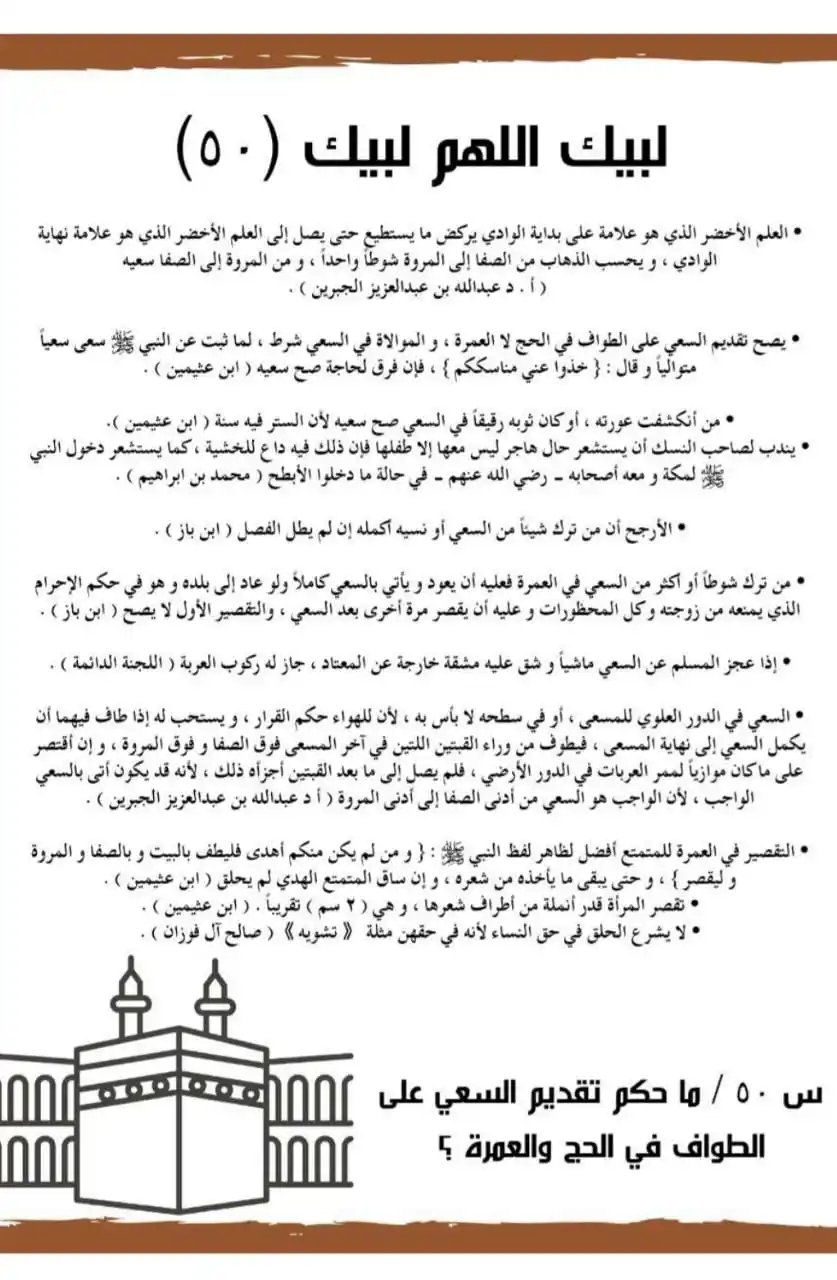 لبيك اللهم لبيك (٥٠)
• العلم الأخضر الذي هو علامة على بداية الوادي يركض ما يستطيع حتى يصل إلى العلم الأخضر الذي هو علامة نهاية
الوادي ، و يحسب الذهاب من الصفا إلى المروة شوطاً واحداً ، و من المروة إلى الصفا سعيه
( أ . د عبدالله بن عبدالعزيز الجبرين ) .
• يصح تقديم السعي على الطواف في الحج لا العمرة ، و الموالاة في السعي شرط ، لما ثبت عن النبي ﷺ سعى سعياً
متوالياً و قال : { خذوا عني مناسككم } ، فإن فرق لحاجة صح سعيه ( ابن عثيمين ) .
• من أنكشفت عورته ، أو كان ثوبه رقيقاً في السعي صح سعيه لأن الستر فيه سنة ( ابن عثيمين ).
• يندب لصاحب النسك أن يستشعر حال هاجر ليس معها إلا طفلها فإن ذلك فيه داع للخشية ، كما يستشعر دخول النبي
ﷺ لمكة و معه أصحابه - رضي الله عنهم - في حالة ما دخلوا الأبطح ( محمد بن ابراهيم ) .
• الأرجح أن من ترك شيئاً من السعي أو نسيه أكمله إن لم يطل الفصل ( ابن باز ) .
• من ترك شوطاً أو أكثر من السعي في العمرة فعليه أن يعود و يأتي بالسعي كاملاً ولو عاد إلى بلده و هو في حكم الإحرام
الذي يمنعه من زوجته وكل المحظورات و عليه أن يقصر مرة أخرى بعد السعي ، والتقصير الأول لا يصح ( ابن باز ) .
• إذا عجز المسلم عن السعي ماشياً و شق عليه مشقة خارجة عن المعتاد ، جاز له ركوب العربة ( اللجنة الدائمة ) .
• السعي في الدور العلوي للمسعى ، أو في سطحه لا بأس به ، لأن للهواء حكم القرار ، و يستحب له إذا طاف فيهما أن
يكمل السعي إلى نهاية المسعى ، فيطوف من وراء القبتين اللتين في آخر المسعى فوق الصفا و فوق المروة ، و إن أقتصر
على ما كان موازياً لممر العربات في الدور الأرضي ، فلم يصل إلى ما بعد القبتين أجزأه ذلك ، لأنه قد يكون أتى بالسعي
الواجب ، لأن الواجب هو السعي من أدنى الصفا إلى أدنى المروة ( أ د عبدالله بن عبدالعزيز الجبرين ) .
• التقصير في العمرة للمتمتع أفضل لظاهر لفظ النبي ﷺ : { و من لم يكن منكم أهدى فليطف بالبيت و بالصفا و المروة
و ليقصر } ، و حتى يبقى ما يأخذه من شعره ، و إن ساق المتمتع الهدي لم يحلق ( ابن عثيمين ) .
• تقصر المرأة قدر أنملة من أطراف شعرها ، و هي ( ٢ سم ) تقريباً . ( ابن عثيمين ) .
• لا يشرع الحلق في حق النساء لأنه في حقهن مثلة 《 تشويه 》 ( صالح آل فوزان ) .
س ٥٠ / ما حكم تقديم السعي على
الطواف في الحج والعمرة ؟